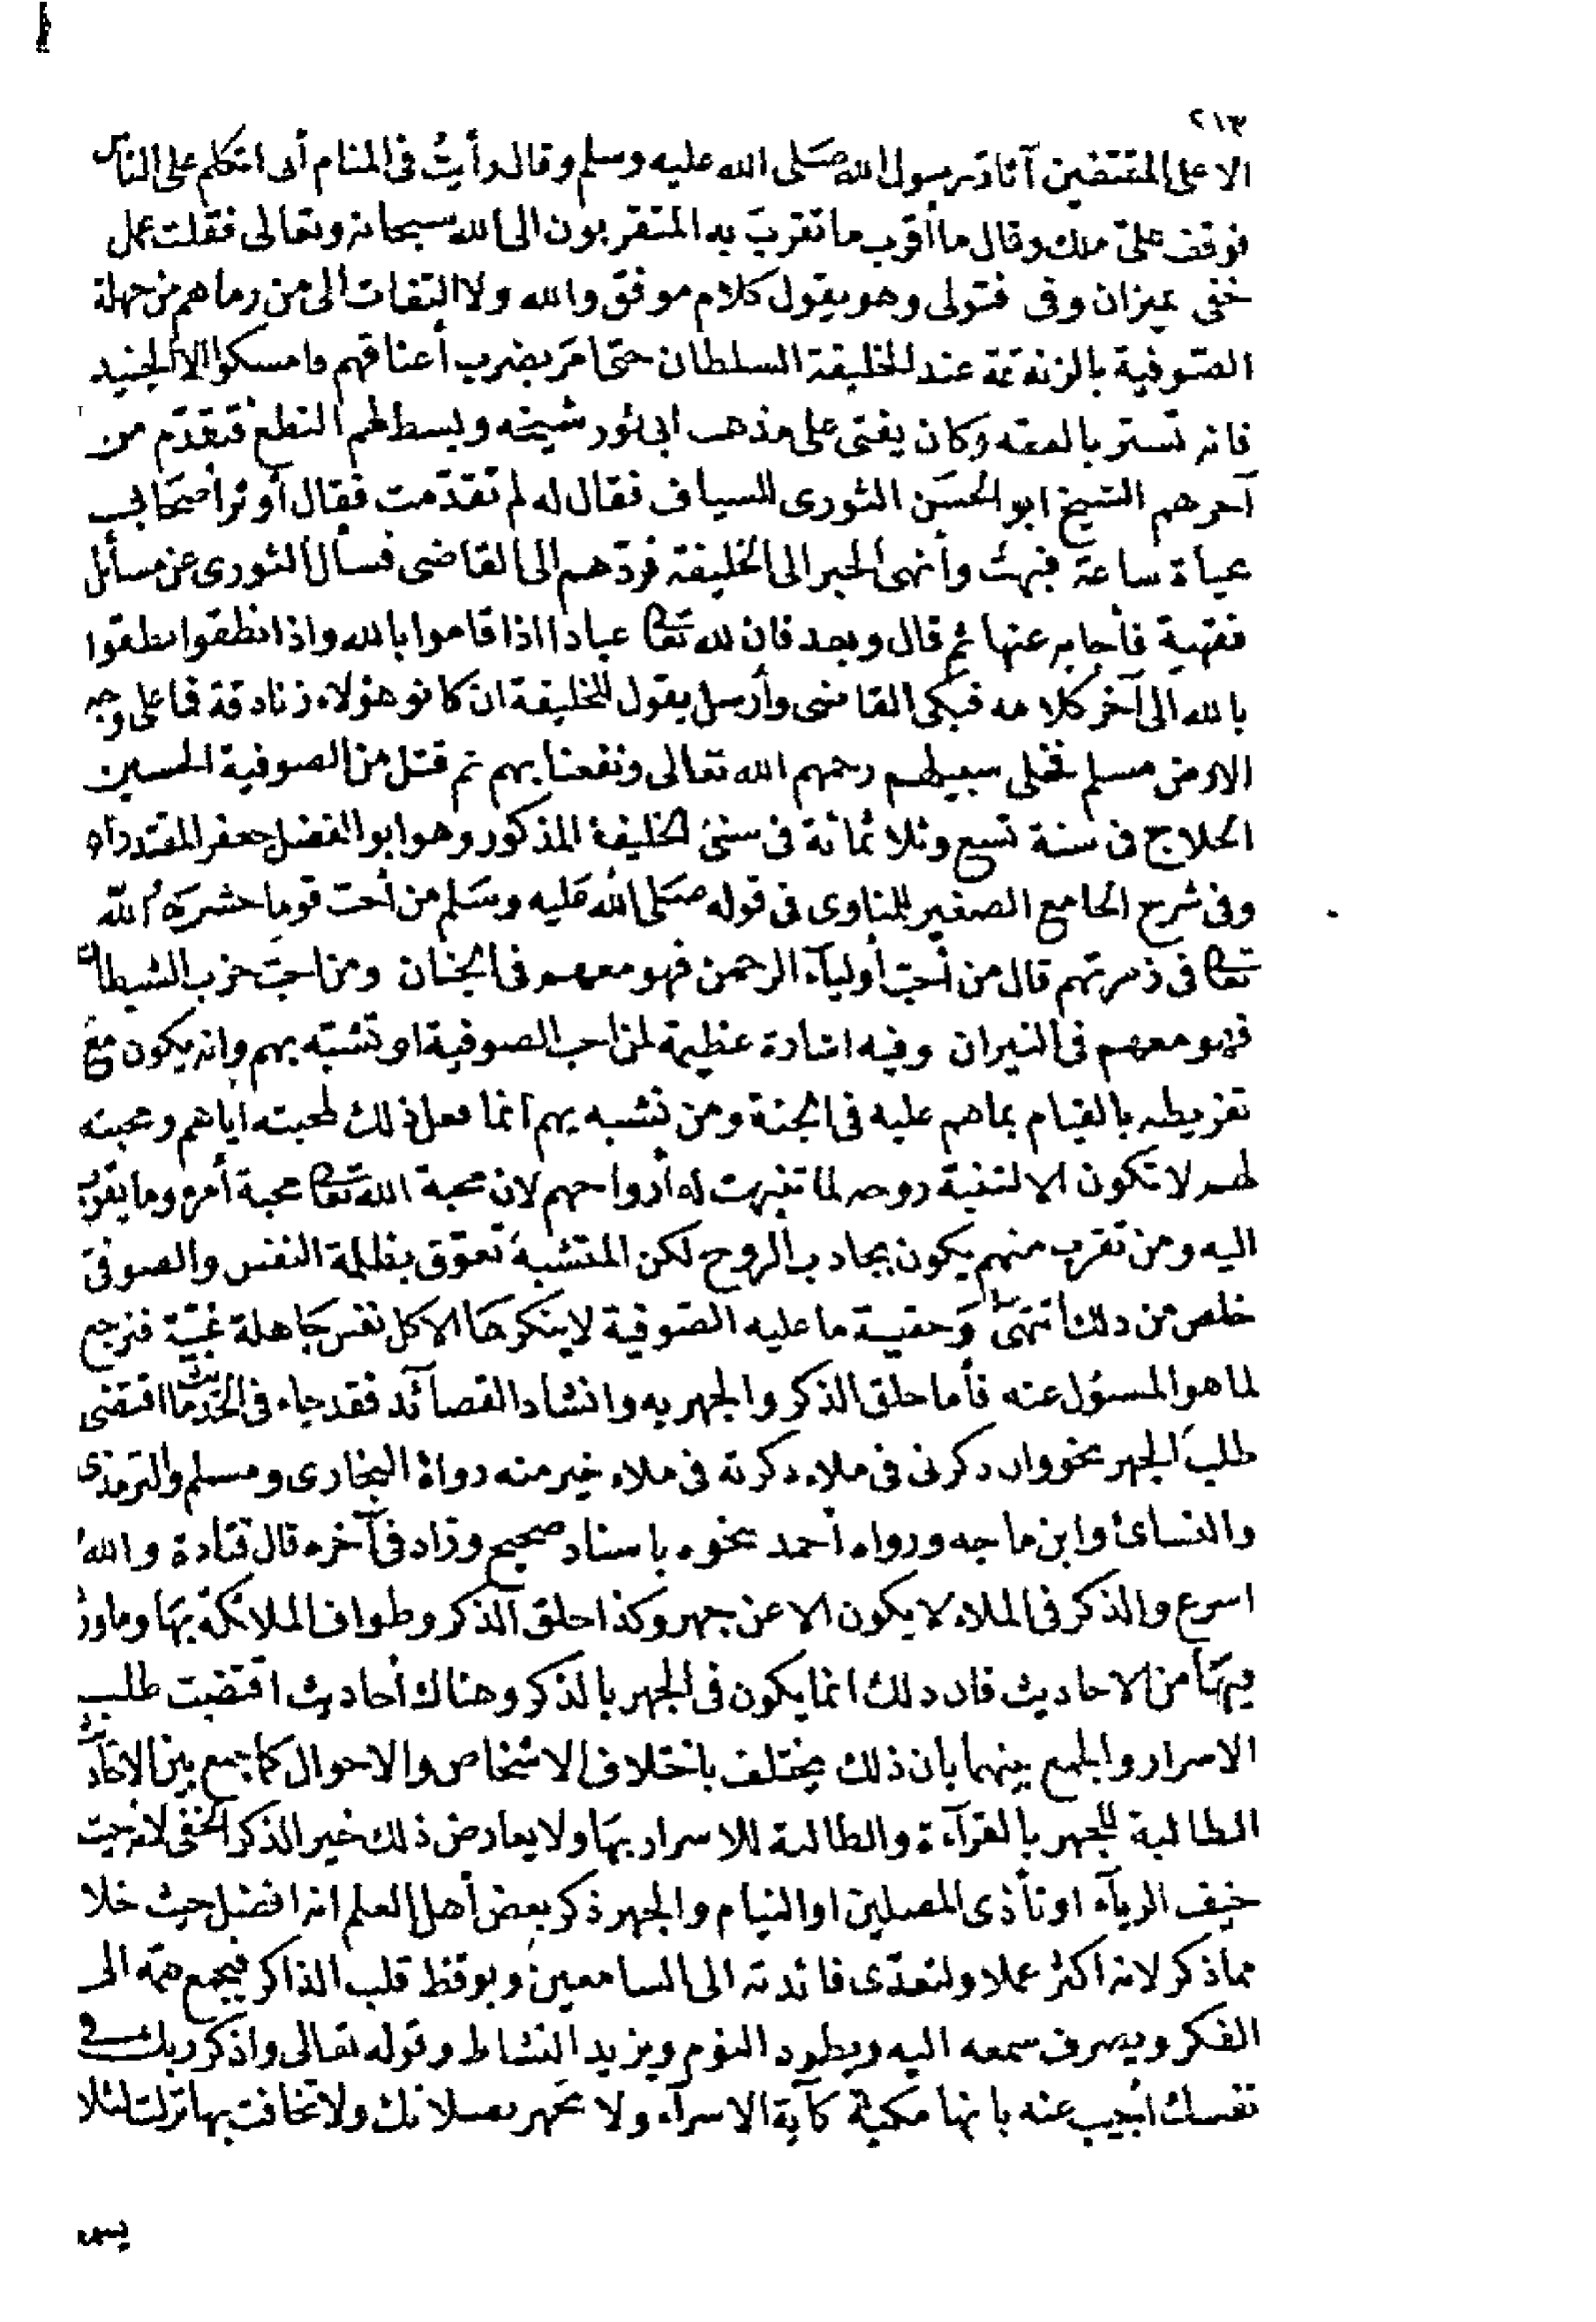 ٢١٣
الا على المقتفين آثار رسول الله صلى الله عليه وسلم وقال رأيت في المنام أني اتكلم على الناس
فوقف علي ملك وقال ما أقرب ما تقرب به المتقربون الى الله سبحانه وتعالى فقلت عمل
خفي بميزان وفى فتولى وهو يقول كلام موفق والله ولا التفات الى من رماهم من جهلة
الصوفية بالزندقة عند الخليفة السلطان حتى امر بضرب أعناقهم فامسكوا الا الجنيد
فانه تستر بالفقه وكان يفتى على مذهب ابي ثور شيخه وبسط لهم النطع فتقدم من
آخرهم الشيخ ابو الحسن النورى للسياف فقال له لم تقدمت فقال أوثر أصحابي
حياة ساعة فبهت وأنهى الخبر الى الخليفة فردهم الى القاضى فسأل النورى عن مسائل
فقهية فأجابه عنها ثم قال وبعد فان لله تعا عبادا اذا قاموا بالله واذا نطقوا نطقوا
بالله الى آخر كلامه فبكى القاضى وأرسل يقول للخليفة ان كانو هؤلاء زنادقة فما على وجه
الارض مسلم فخلى سبيلهم رحمهم الله تعالى ونفعنا بهم ثم قتل من الصوفية الحسين
الحلاج في سنة تسع وثلاثمائة في سنى الخليفة المذكور وهو ابو الفضل جعفر المقتدر اه
وفي شرح الجامع الصغير للمناوى في قوله صلى الله عليه وسلم من أحب قوما حشره الله
تعا في زمرتهم قال من أحب أولياء الرحمن فهو معهم في الجنان ومن احب حزب الشيطان
فهو معهم في النيران وفيه اشارة عظيمة لمن احب الصوفية او تشبه بهم وانه يكون مع
تفريطه بالقيام بما هم عليه في الجنة ومن تشبه بهم انما فعل ذلك لمحبته اياهم ومحبته
لهم لا تكون الا لتنبه روحه لما تنبهت له أرواحهم لان محبة الله تعا محبة أمره وما يقرب
اليه ومن تقرب منهم يكون بجاذب الروح لكن المتشبه تعوق بظلمة النفس والصوفى
خلص من ذلك انتهى وحقية ما عليه الصوفية لا ينكرها الا كل نفس جاهلة غبية فنرجع
لما هو المسؤل عنه فأما حلق الذكر والجهر به وانشاد القصائد فقد جاء في الحديث ما اقتضى
طلب الجهر نحو وان ذكرنى في ملاء ذكرته في ملاء خير منه رواه البخارى ومسلم والترمذى
والنسائ وابن ماجه ورواه أحمد بنحوه باسناد صحيح وزاد في آخره قال قتادة والله
اسرع والذكر في الملاء لا يكون الا عن جهر وكذا حلق الذكر وطواف الملائكة بها وما ورد
فيها من الاحاديث فان ذلك انما يكون في الجهر بالذكر وهناك أحاديث اقتضت طلب
الاسرار والجمع بينهما بان ذلك يختلف باختلاف الاشخاص والاحوال كما جمع بين الاحاديث
الطالبة للجهر بالقرآءة والطالبة للاسرار بها ولا يعارض ذلك خير الذكر الخفى لانه حيث
خيف الريآء او تأذى المصلين او النيام والجهر ذكر بعض أهل العلم انه افضل حيث خلا
مما ذكر لانه اكثر عملا ولتعدى فائدته الى السامعين ويوقظ قلب الذاكر فيجمع همه الى
الفكر ويصرف سمعه اليه ويطرد النوم ويزيد النشاط وقوله تعالى واذكر ربك في
نفسك أجيب عنه بانها مكية كآية الاسرآء ولا تجهر بصلاتك ولا تخافت بها نزلت لئلا
يسمعه